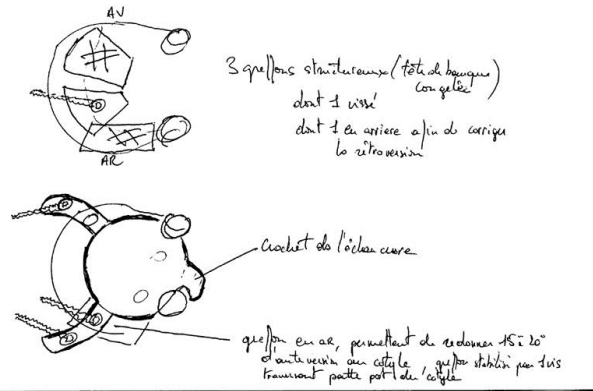 AV
3 greffons structuraux (tête de banque
congelée)
dont 1 vissé
dont 1 en arrière afin de corriger
la rétroversion
AR
Crochet de l'échancrure
greffon en AR, permettant de redonner 15-20°
d'antéversion au cotyle greffon stabilisé par 1 vis
traversant patte post du cotyle